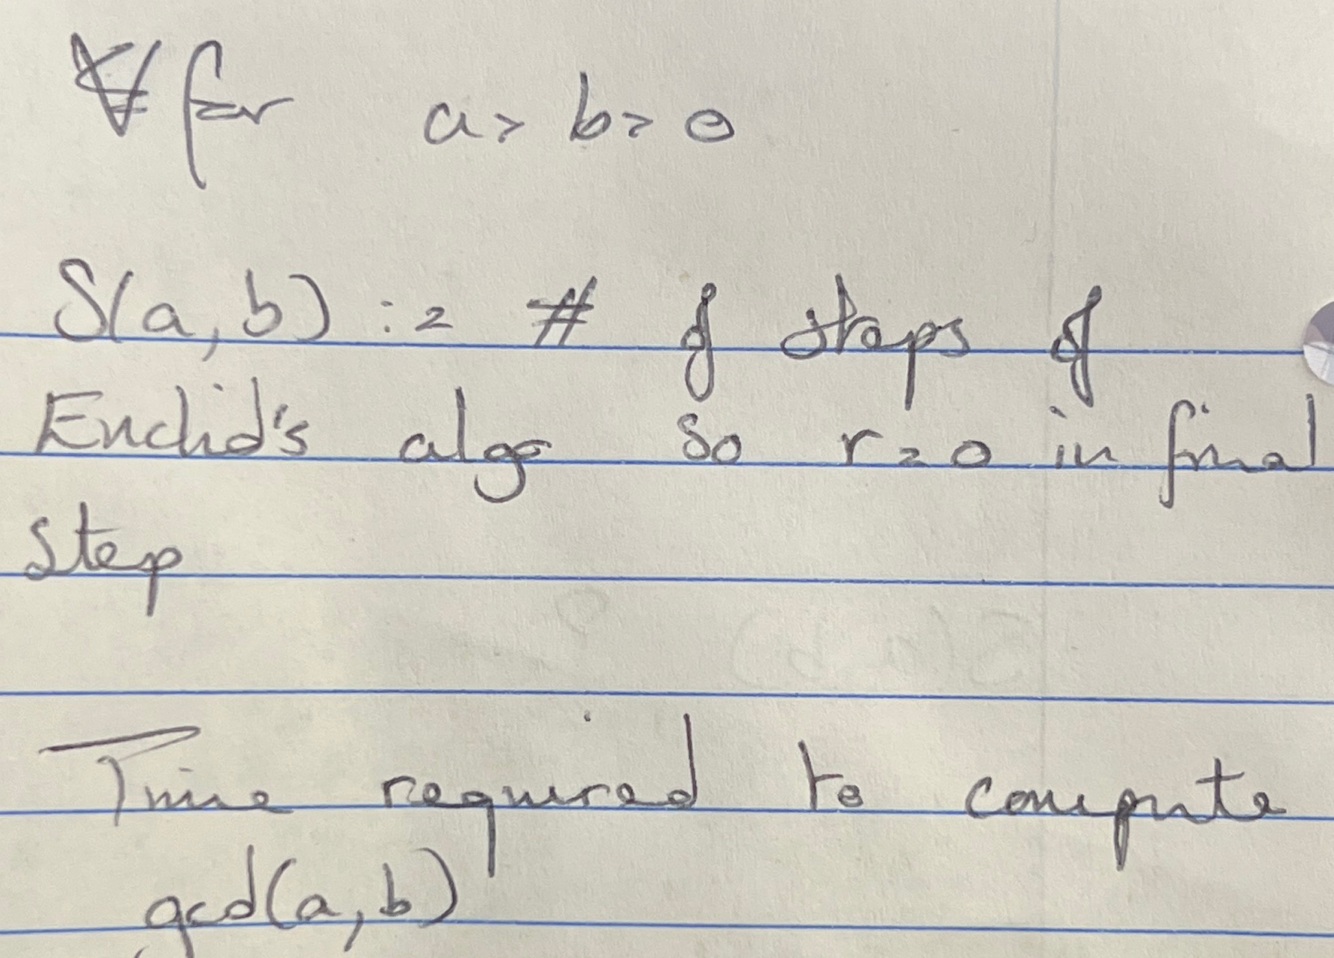 ∀ for a > b > 0
S(a, b) := # of steps of
Euclid's algo so r = 0 in final
step
Time required to compute
gcd(a, b)